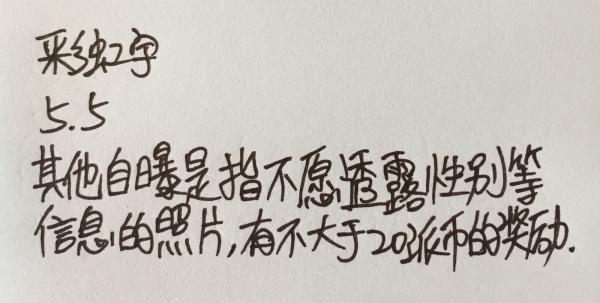 彩虹字
5.5
其他自曝是指不愿透露性别等
信息的照片,有不大于20派币的奖励.